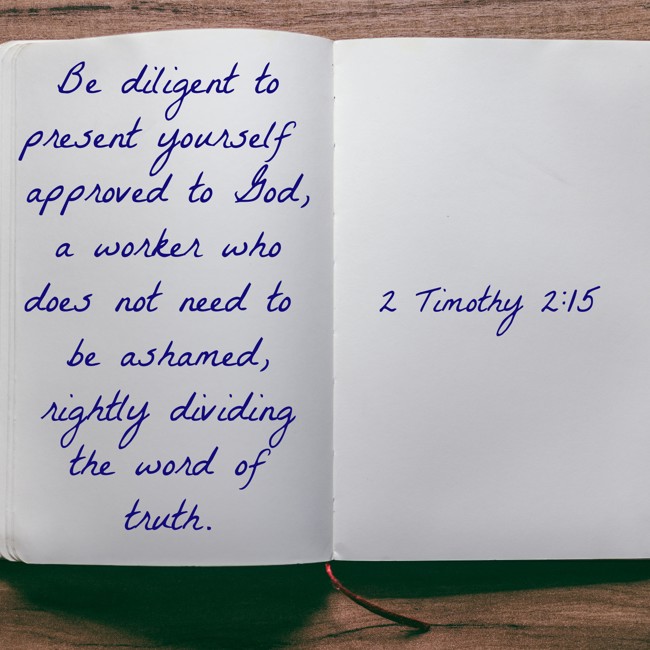 Be diligent to
present yourself
approved to God,
a worker who
does not need to
be ashamed,
rightly dividing
the word of
truth.
2 Timothy 2:15